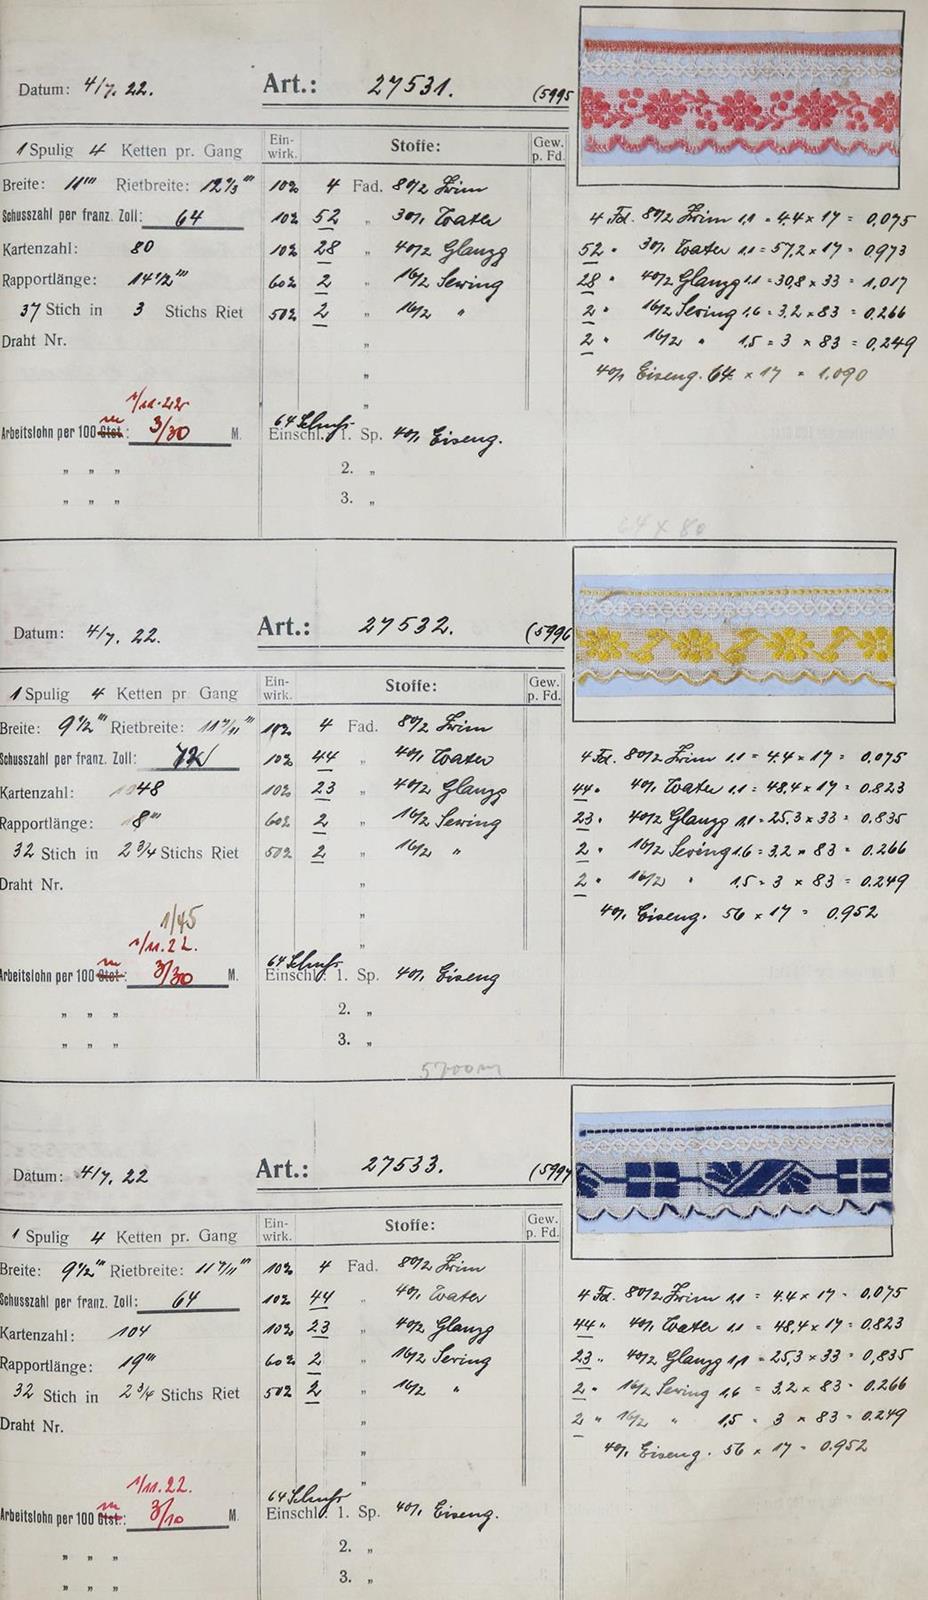 Datum: 4/7. 22. Art.: 27531. (5995
1 Spulig 4 Ketten pr. Gang Ein-wirk. Stoffe: Gew. p. Fd.
Breite: 11''' Rietbreite: 12 2/3''' 10% 4 Fad. 80/2 Zwirn
Schusszahl per franz. Zoll: 64 10% 52 " 30/1 Water
Kartenzahl: 80 10% 28 " 40/2 Glanzg
Rapportlänge: 14 1/2''' 60% 2 " 16/2 Sewing
37 Stich in 3 Stichs Riet 50% 2 " 16/2 "
Draht Nr. "
"
"
4 Fd. 80/2 Zwirn 1.1 = 4.4 x 17 = 0,075
52 " 30/1 Water 1.1 = 57,2 x 17 = 0,973
28 " 40/2 Glanzg 1.1 = 30,8 x 33 = 1,017
2 " 16/2 Sewing 1.6 = 3,2 x 83 = 0,266
2 " 16/2 " 1,5 = 3 x 83 = 0,249
40/1 Eiseng. 64 x 17 = 1,090
1/11.22
Arbeitslohn per 100 m Gtst.: 3/30 M. 64 Schuss Einschl. 1. Sp. 40/1 Eiseng.
" " " 2. "
" " " 3. "
64 x 80
Datum: 4/7. 22. Art.: 27532. (5996
1 Spulig 4 Ketten pr. Gang Ein-wirk. Stoffe: Gew. p. Fd.
Breite: 9 1/2''' Rietbreite: 11 7/11''' 10% 4 Fad. 80/2 Zwirn
Schusszahl per franz. Zoll: 72 10% 44 " 40/1 Water
Kartenzahl: 48 10% 23 " 40/2 Glanzg
Rapportlänge: 8''' 60% 2 " 16/2 Sewing
32 Stich in 2 3/4 Stichs Riet 50% 2 " 16/2 "
Draht Nr. "
"
"
4 Fd. 80/2 Zwirn 1.1 = 4.4 x 17 = 0,075
44 " 40/1 Water 1.1 = 48,4 x 17 = 0,823
23 " 40/2 Glanzg 1,1 = 25,3 x 33 = 0,835
2 " 16/2 Sewing 1.6 = 3,2 x 83 = 0,266
2 " 16/2 " 1,5 = 3 x 83 = 0,249
40/1 Eiseng. 56 x 17 = 0,952
1/45
1/11.22.
Arbeitslohn per 100 m Gtst.: 3/30 M. 64 Schuss Einschl. 1. Sp. 40/1 Eiseng
" " " 2. "
" " " 3. "
5700m
Datum: 4/7. 22 Art.: 27533. (5997
1 Spulig 4 Ketten pr. Gang Ein-wirk. Stoffe: Gew. p. Fd.
Breite: 9 1/2''' Rietbreite: 11 7/11''' 10% 4 Fad. 80/2 Zwirn
Schusszahl per franz. Zoll: 64 10% 44 " 40/1 Water
Kartenzahl: 104 10% 23 " 40/2 Glanzg
Rapportlänge: 19''' 60% 2 " 16/2 Sewing
32 Stich in 2 3/4 Stichs Riet 50% 2 " 16/2 "
Draht Nr. "
"
"
4 Fd. 80/2 Zwirn 1.1 = 4.4 x 17 = 0,075
44 " 40/1 Water 1.1 = 48,4 x 17 = 0,823
23 " 40/2 Glanzg 1,1 = 25,3 x 33 = 0,835
2 " 16/2 Sewing 1,6 = 3,2 x 83 = 0,266
2 " 16/2 " 1,5 = 3 x 83 = 0,249
40/1 Eiseng. 56 x 17 = 0,952
1/11.22.
Arbeitslohn per 100 m Gtst.: 3/10 M. 64 Schuss Einschl. 1. Sp. 40/1 Eiseng.
" " " 2. "
" " " 3. "